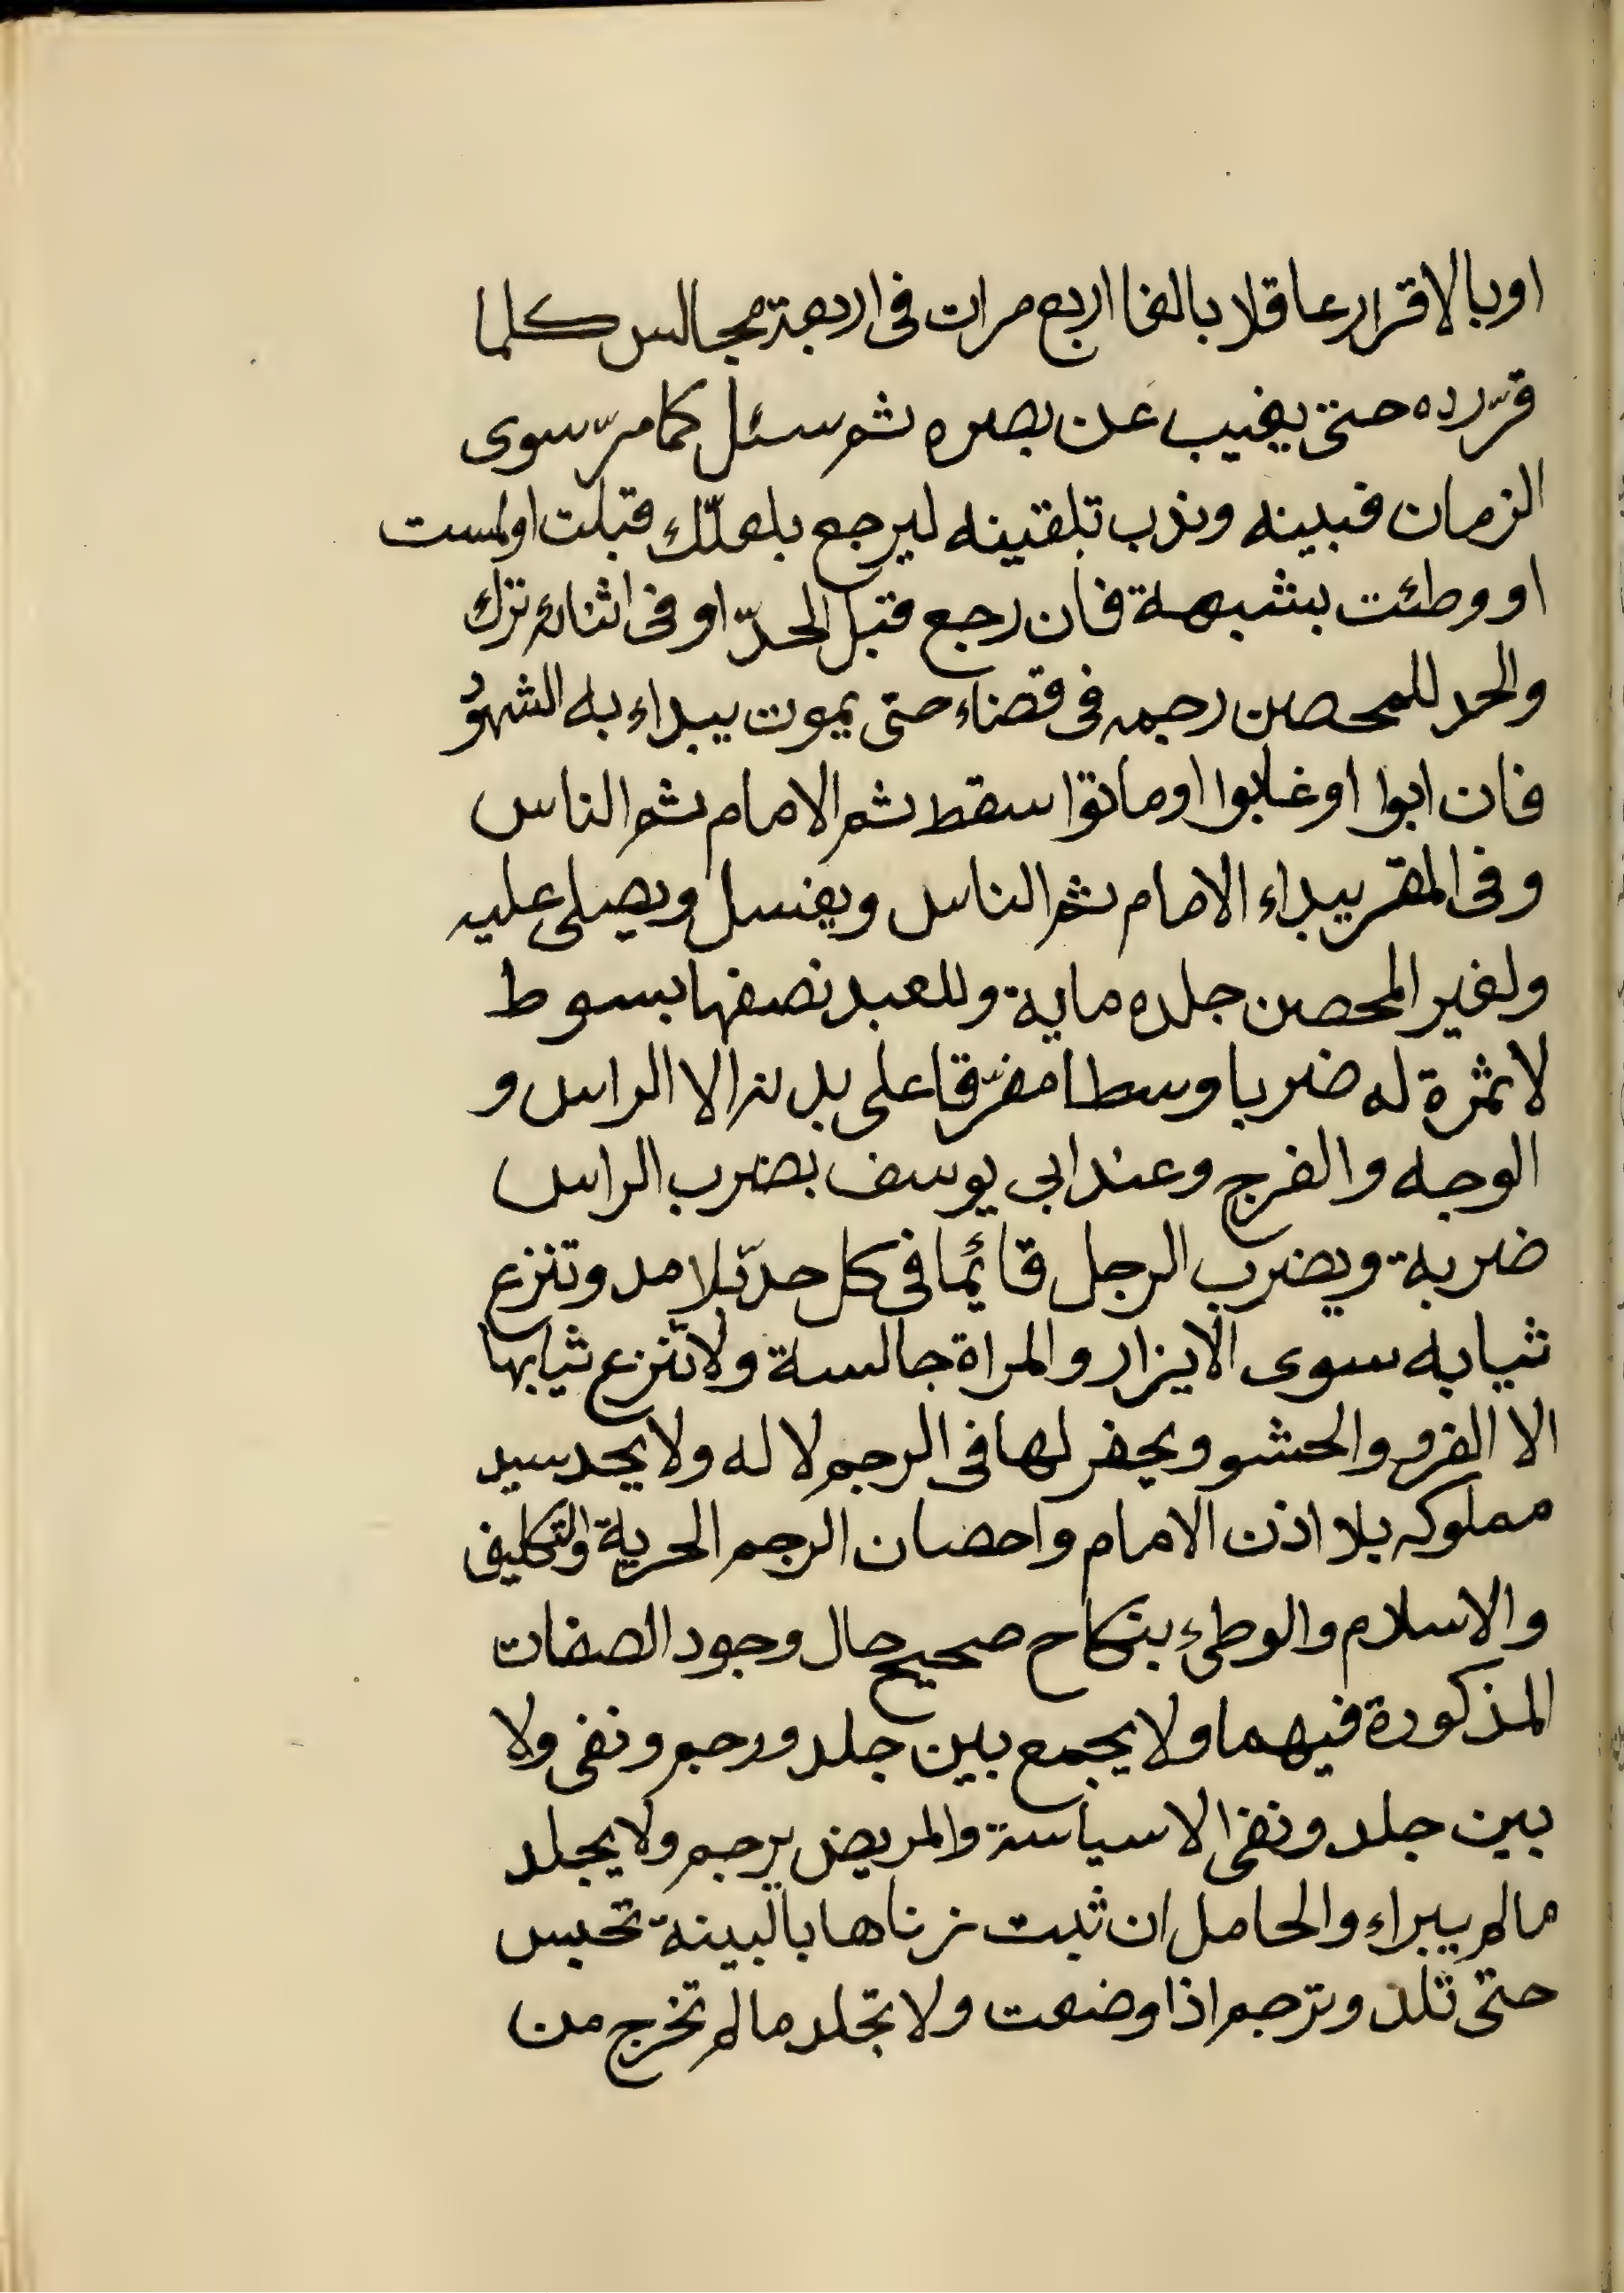 او بالاقرار عاقلا بالغا اربع مرات فى اربعة مجالس كلما
قرّ رده حتى يغيب عن بصره ثم سئل كما مرّ سوى
الزمان فبينه وندب تلقينه ليرجع بلعلّك قبلت او لمست
او وطئت بشبهة فان رجع قبل الحدّ او فى اثنائه ترك
والحد للمحصن رجمه فى فضاء حتى يموت يبداء به الشهود
فان ابوا او غابوا او ماتوا سقط ثم الامام ثم الناس
وفى المقر يبداء الامام ثم الناس ويغسل ويصلى عليه
ولغير المحصن جلده ماية وللعبد نصفها بسوط
لا ثمرة له ضربا وسطا مفرّقا على بدنه الا الراس و
الوجه والفرج وعند ابى يوسف يضرب الراس
ضربة ويضرب الرجل قائما فى كل حدّ بلا مد وتنزع
ثيابه سوى الايزار والمراة جالسة ولا تنزع ثيابها
الا الفرو والحشو ويحفر لها فى الرجم لا له ولا يحد سيد
مملوكه بلا اذن الامام واحصان الرجم الحرية والتكليف
والاسلام والوطىء بنكاح صحيح حال وجود الصفات
المذكورة فيهما ولا يجمع بين جلد ورجم ونفى ولا
بين جلد ونفى الا سياسة والمريض يرجم ولا يجلد
مالم يبراء والحامل ان ثبت زناها بالبينة تحبس
حتى تلد وترجم اذا وضعت ولا تجلد مالم تخرج من